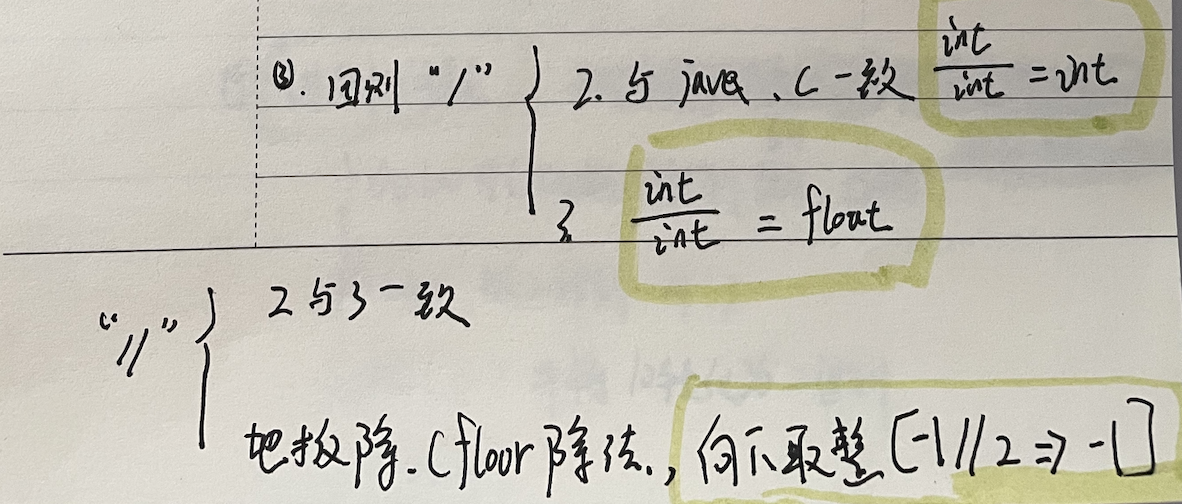 ③. 区别 "/" { 2. 与 java、C 一致 int/int = int
3. int/int = float
"//" { 2 与 3 一致
地板除. (floor 除法., 向下取整 [-1//2 => -1]